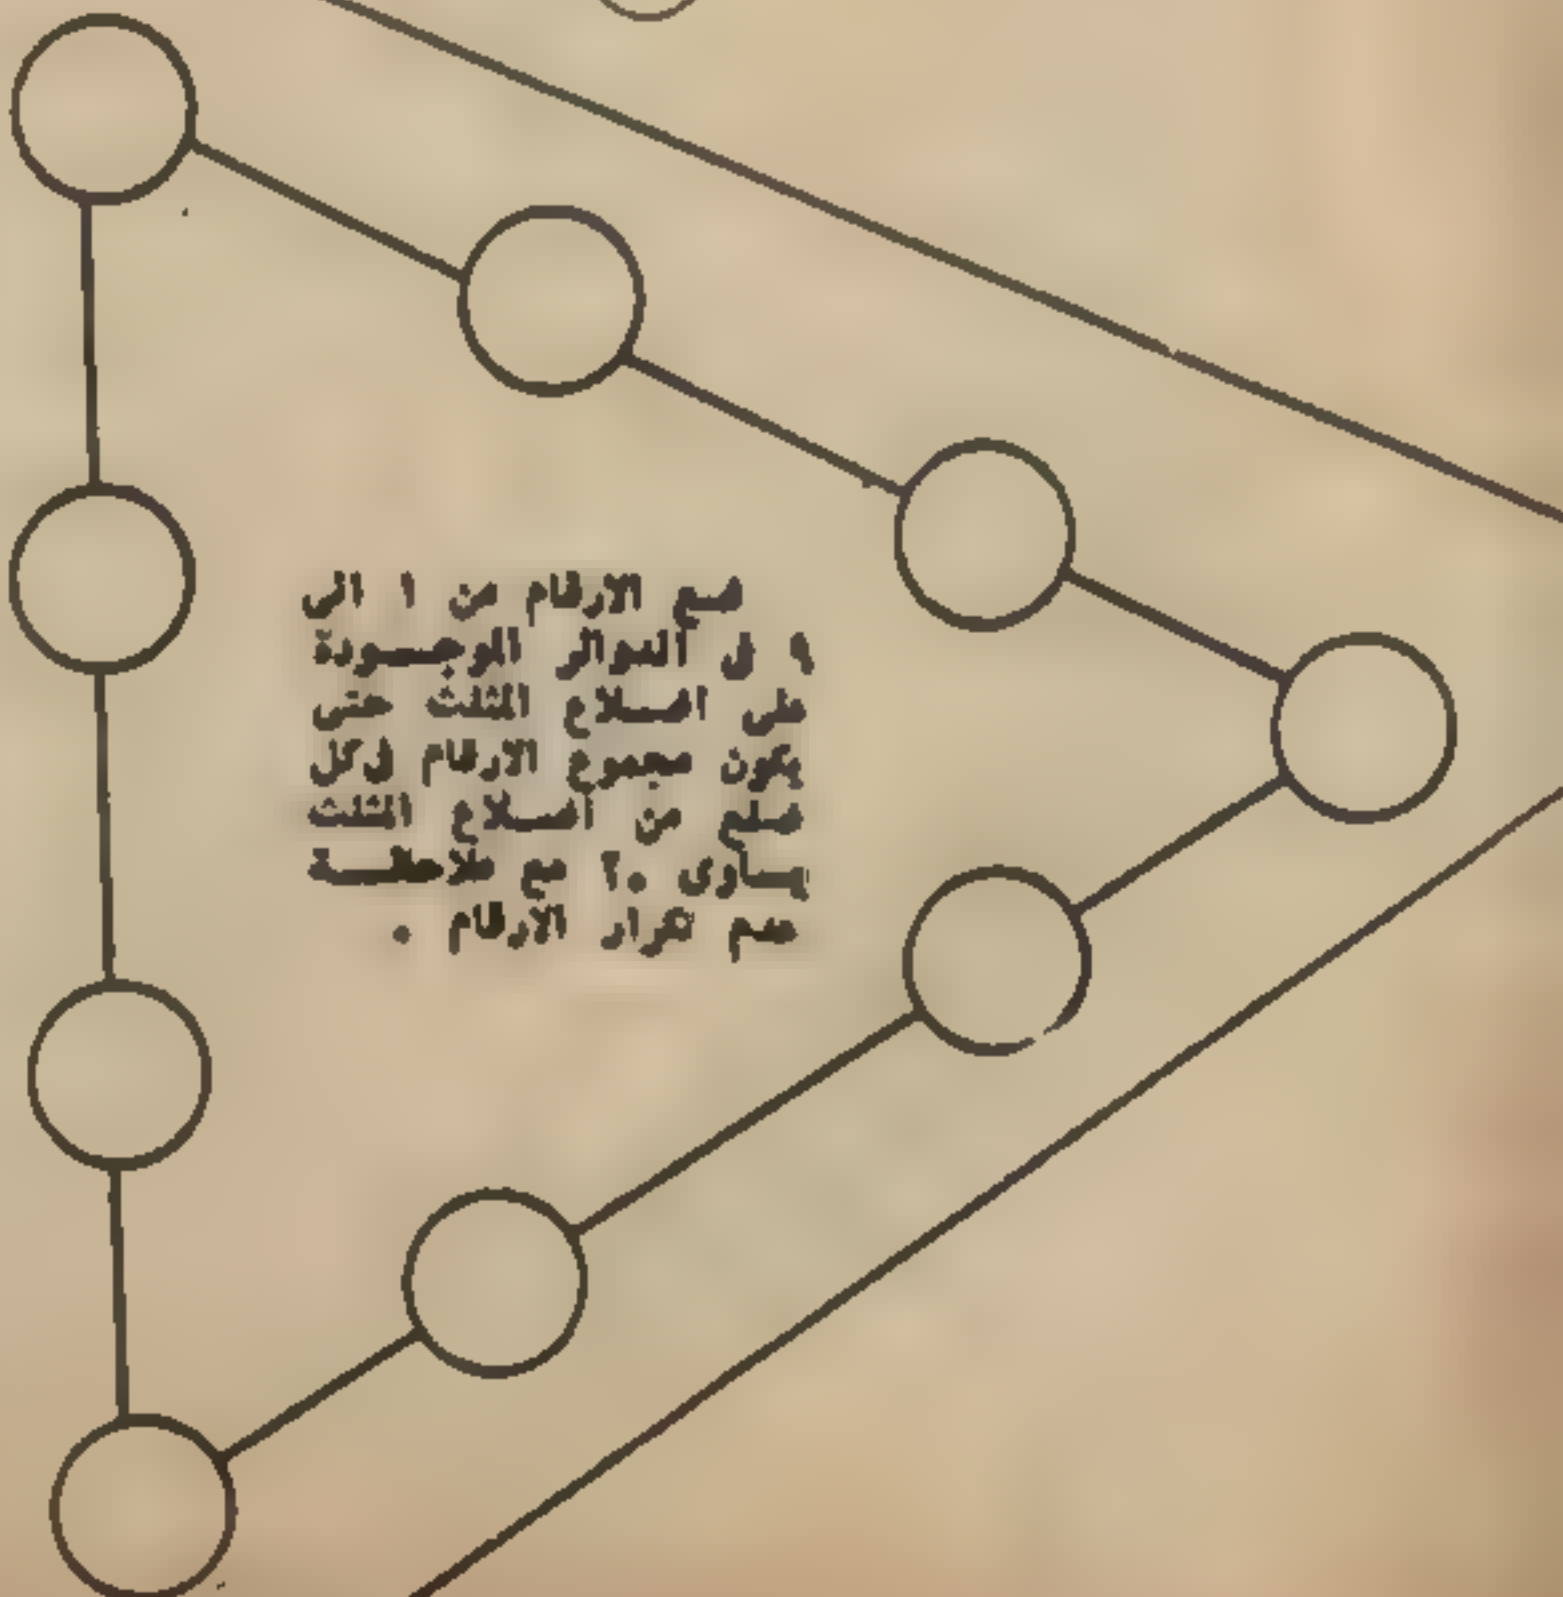 ضع الارقام من ١ الى
٩ في الدوائر الموجـــودة
على اضـــلاع المثلث حتى
يكون مجموع الارقام في كل
ضلع من أضـــلاع المثلث
يساوى ٢٠ مع ملاحظـــة
عدم تكرار الارقام .